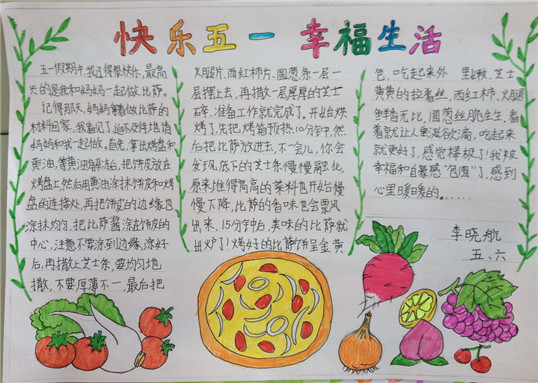 快乐五一 幸福生活
五一假期中,我过得很快乐,最高
兴的是我和妈妈一起做比萨。
记得那天,妈妈拿着做比萨的
材料回家,我看见了,迫不及待地请
妈妈和我一起做。首先,拿出烤盘和
黄油,等黄油融化后,把饼皮放在
烤盘上,然后用黄油涂抹饼皮和烤
盘的连接处,再把饼皮的边缘也
涂抹均匀。把比萨酱涂在饼皮的
中心,注意不要涂到边缘,涂好
后,再撒上芝士条,要均匀地
撒,不要厚薄不一,最后把
火腿片,西红柿片,圆葱条一层一
层摆上去,再撒一层厚厚的芝士
碎,准备工作就完成了。开始烘
烤了,先把烤箱预热10分钟,然
后把比萨放进去,不一会儿,你会
发现底下的芝士条慢慢融化,
原来堆得高高的菜料也开始慢
慢下降,比萨的香味也会飘风
出来,15分钟左右,美味的比萨就
出炉了!烤好的比萨饼呈金黄
色,吃起来外 里嫩,芝士
黄黄的拉着丝,西红柿、火腿
色鲜无比,圆葱丝脆生生,看
着就让人垂涎欲滴,吃起来
就更好了,感觉棒极了!我被
幸福和自豪感"包围"了,感到
心里暖暖的......
李晓航
五、六